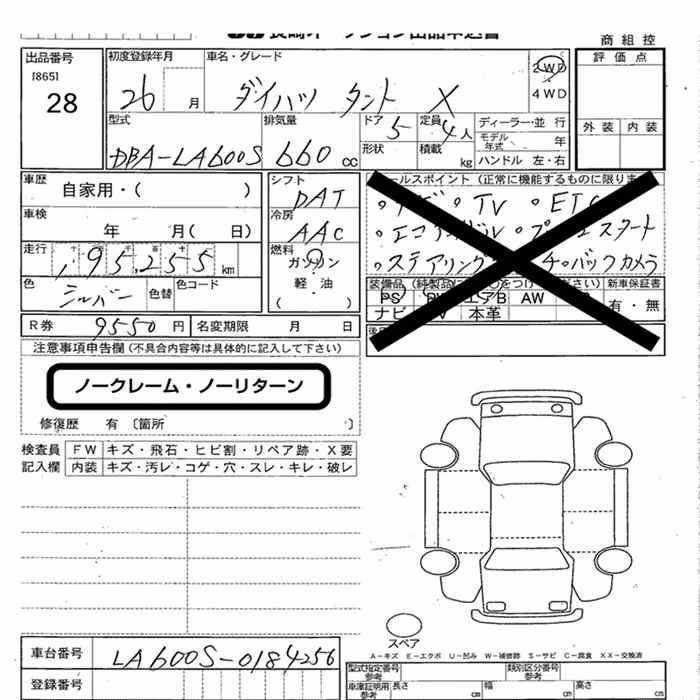 商 組 控
出品番号
[865]
28
初度登録年月
26 月
車名・グレード
ダイハツ タント X
2WD
4WD
評 価 点
外 装 内 装
型式
DBA-LA600S
排気量
660 cc
ドア 5
形状
定員 4 人
積載 kg
ディーラー・並 行
モデル年式 年
ハンドル 左・右
車歴
自家用・( )
シフト
DAT
車検
年 月( 日)
冷房
AAC
走行
十 千 百 十
195,255 km
燃料
ガソリン
軽・油
( )
色
シルバー
色替
色コード
R券 9550 円
名変期限 月 日
セールスポイント (正常に機能するものに限りま
・ナビ ・TV ・ETC
・スタート
・ステアリング ・バックカメラ
装備品 (純製品に○をつけて下さい)
新車保証書
PS エアB AW
ナビ 本革
有・無
注意事項申告欄 (不具合内容等は具体的に記入して下さい)
ノークレーム・ノーリターン
修復歴 有 〔箇所 〕
検査員
記入欄
FW キズ・飛石・ヒビ割・リペア跡・X要
内装 キズ・汚レ・コゲ・穴・スレ・キレ・破レ
スペア
A-キズ E-エクボ U-凹み W-補修跡 S-サビ C-腐食 XX-交換済
車台番号
LA600S-0184256
登録番号
型式指定番号
参考
類別区分番号
参考
車庫証明用
参考
長さ cm
幅 cm
高さ cm